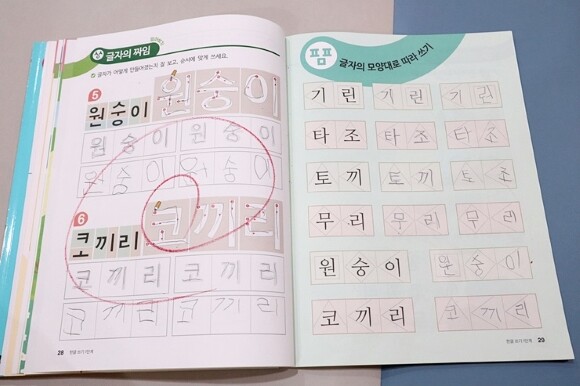 글자의 짜임
글자가 어떻게 만들어졌는지 잘 보고, 순서에 맞게 쓰세요.
5
원숭이 원숭이
원숭이 원숭이
원숭이 원숭이
6
코끼리 코끼리
코끼리 코끼리
코끼리 코끼리
28 한글 쓰기 1단계
폼폼 글자의 모양대로 따라 쓰기
기린 기린 기린
타조 타조 타조
토끼 토끼 토끼
무리 무리 무리
원숭이 원숭이
코끼리 코끼리
한글 쓰기 1단계 29